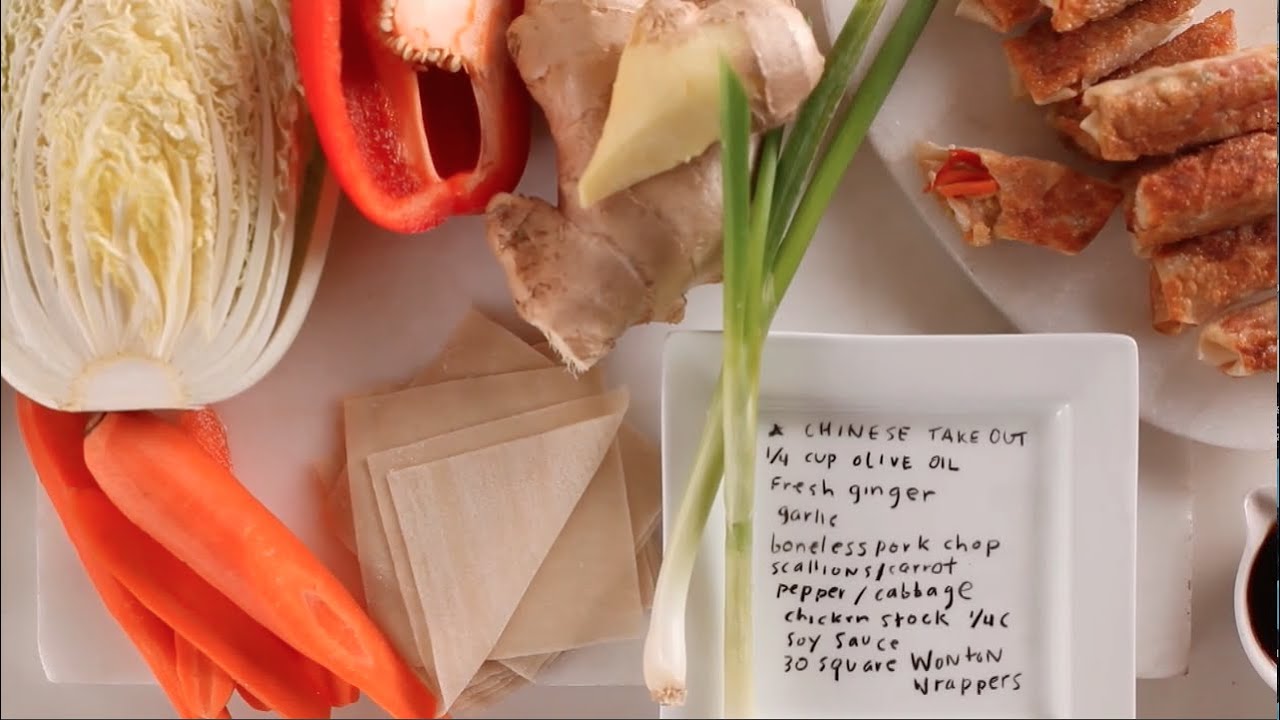 * CHINESE TAKE OUT
1/4 cup olive oil
Fresh ginger
garlic
boneless pork chop
scallions/carrot
pepper/cabbage
chicken stock 1/4 C
soy sauce
30 square Wonton
Wrappers